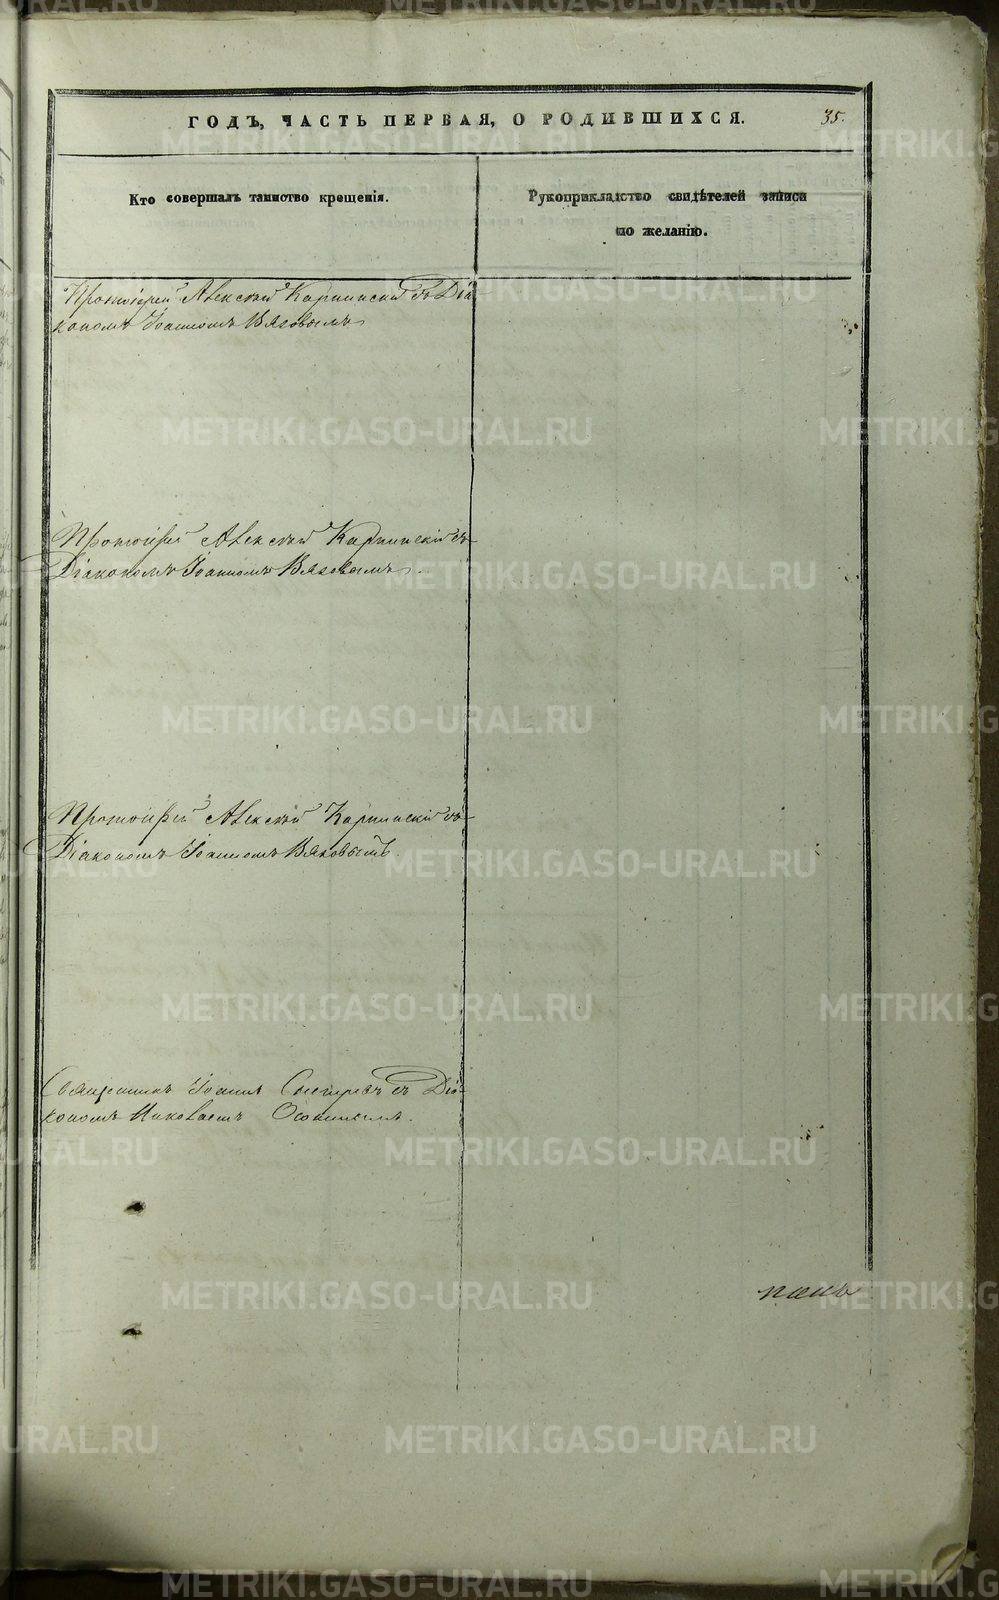 ГОДЪ, ЧАСТЬ ПЕРВАЯ, О РОДИВШИХСЯ.
35.
Кто совершалъ таинство крещенія.
Рукоприкладство свидѣтелей записи
по желанію.
Протоіерей Алексѣй Карпинскій съ Діа-
кономъ Іоанномъ Вяловымъ
Протоіерей Алексѣй Карпинскій съ
Діакономъ Іоанномъ Вяловымъ.
Протоіерей Алексѣй Карпинскій съ
Діакономъ Іоанномъ Вяловымъ
Священникъ Іоаннъ Снегиревъ съ Діа-
кономъ Николаемъ Осокинымъ.
METRIKI.GASO-URAL.RU